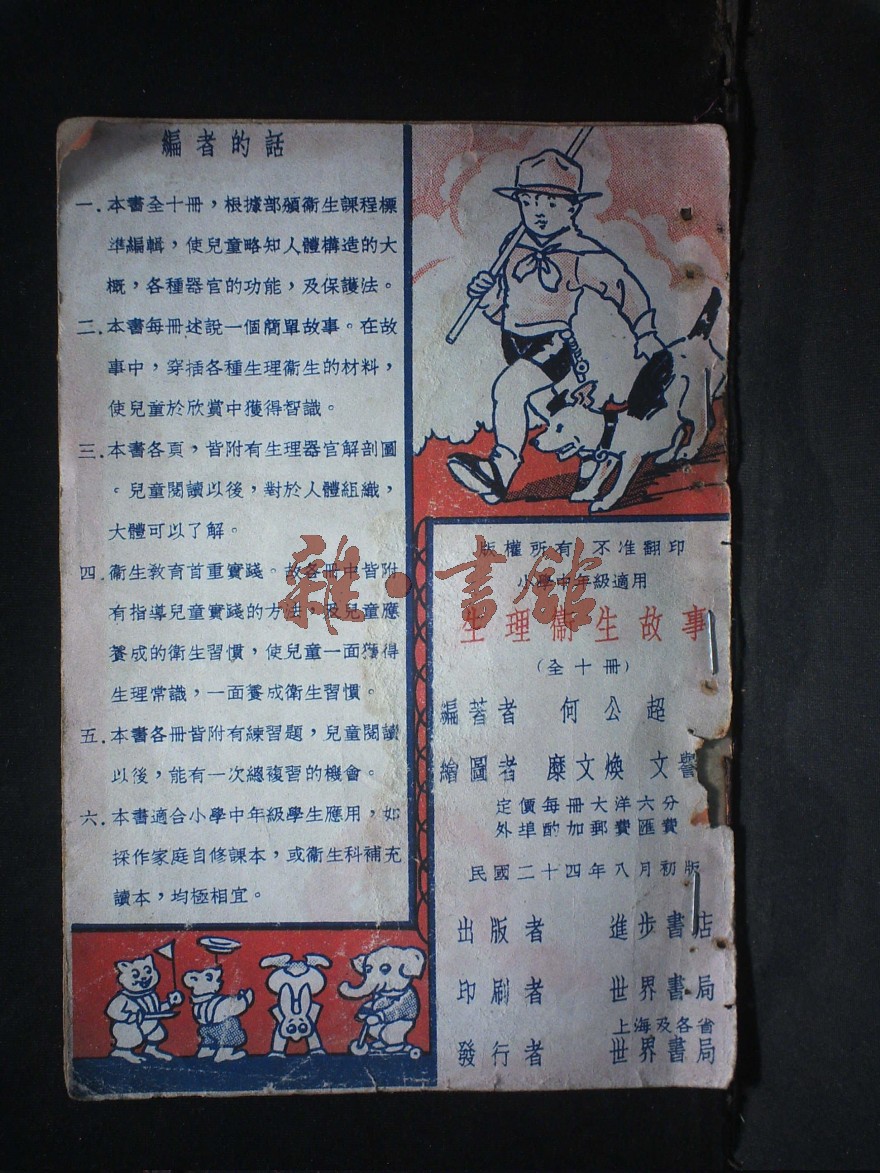 編者的話
一．本書全十冊，根據部頒衞生課程標
準編輯，使兒童略知人體構造的大
概，各種器官的功能，及保護法。
二．本書每冊述說一個簡單故事。在故
事中，穿插各種生理衞生的材料，
使兒童於欣賞中獲得智識。
三．本書各頁，皆附有生理器官解剖圖
。兒童閱讀以後，對於人體組織，
大體可以了解。
四．衞生教育首重實踐。故各冊中皆附
有指導兒童實踐的方法，及兒童應
養成的衞生習慣，使兒童一面獲得
生理常識，一面養成衞生習慣。
五．本書各冊皆附有練習題，兒童閱讀
以後，能有一次總複習的機會。
六．本書適合小學中年級學生應用，如
採作家庭自修課本，或衞生科補充
讀本，均極相宜。
版權所有 不准翻印
小學中年級適用
生理衞生故事
（全十冊）
編著者 何公超
繪圖者 糜文煥 文
定價每冊大洋六分
外埠酌加郵費匯費
民國二十四年八月初版
出版者 進步書店
印刷者 世界書局
上海及各省
發行者 世界書局
雜·書館